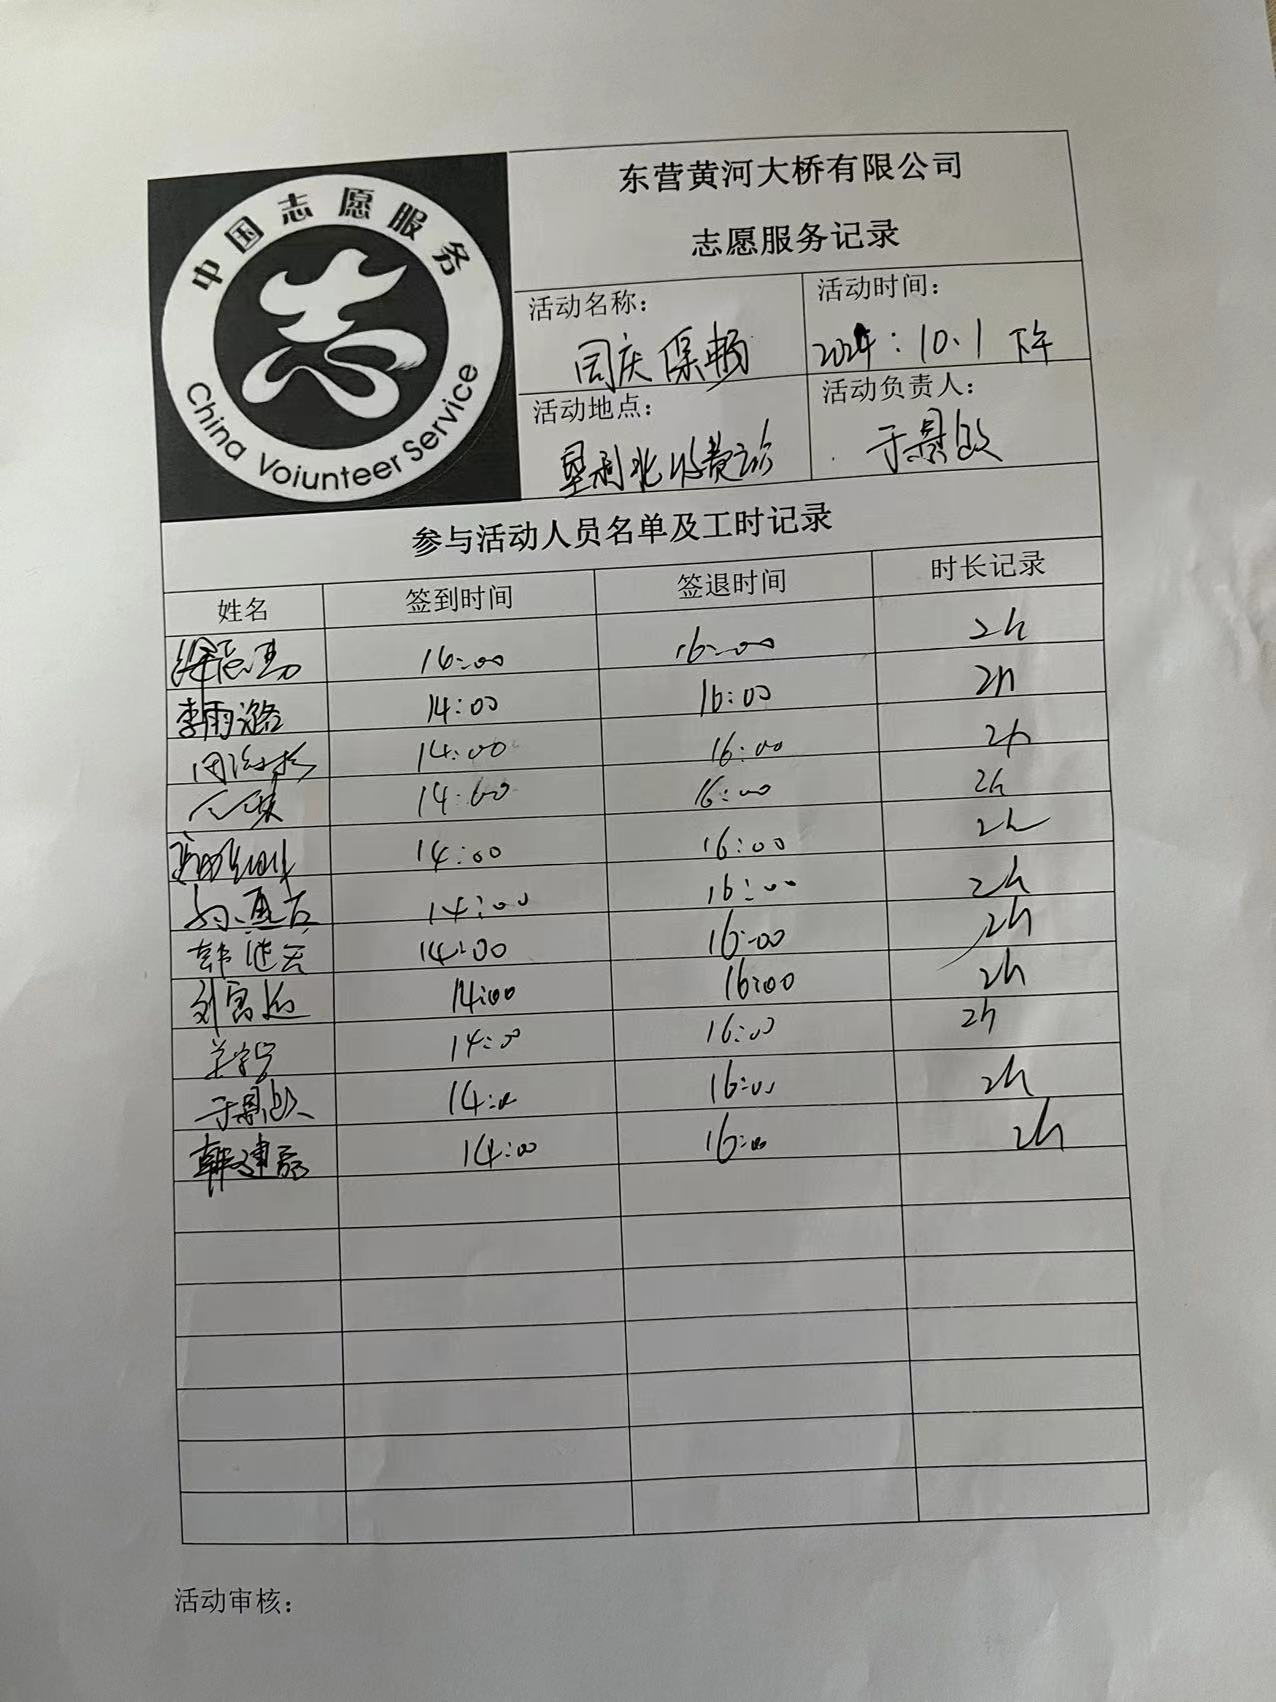 中国志愿服务
China Voiunteer Service
东营黄河大桥有限公司
志愿服务记录
活动名称：
国庆保畅
活动时间：
2024：10.1 下午
活动地点：
垦利北收费站
活动负责人：
于景政
参与活动人员名单及工时记录
姓名 签到时间 签退时间 时长记录
14:00 16:00 2h
李雨潞 14:00 16:00 2h
14:00 16:00 2h
14:00 16:00 2h
14:00 16:00 2h
14:00 16:00 2h
14:00 16:00 2h
14:00 16:00 2h
14:00 16:00 2h
于景政 14:00 16:00 2h
14:00 16:00 2h
活动审核：